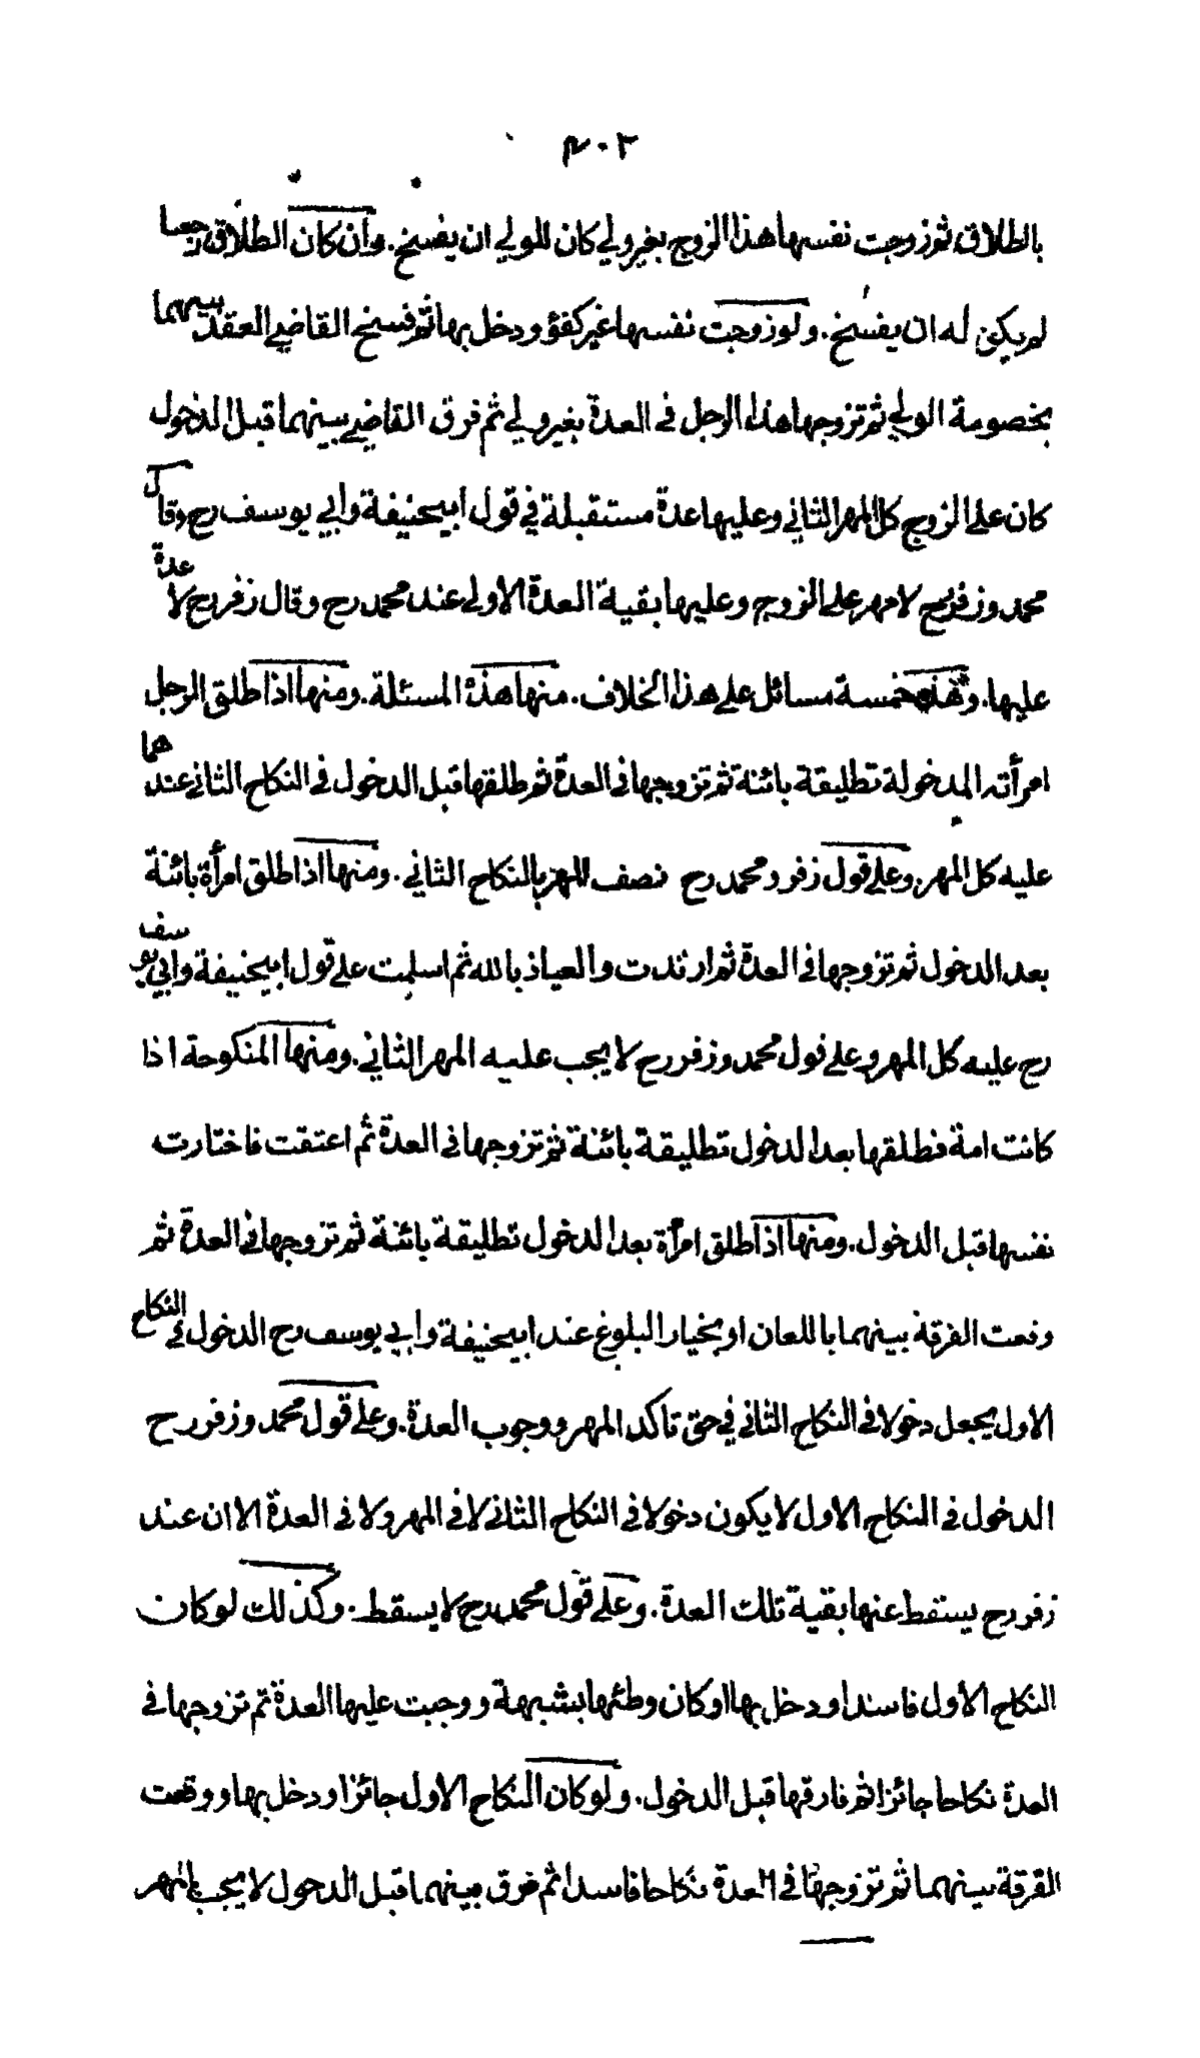 ٢٠٣
بالطلاق ثم زوجت نفسها هذا الزوج بغير ولي كان للولي ان يفسخ. وان كان الطلاق رجعيا
لم يكن له ان يفسخ. ولو زوجت نفسها غير كفؤ ودخل بها ثم فسخ القاضي العقد بينهما
بخصومة الولي ثم تزوجها هذا الرجل في العدة بغير ولي ثم فرق القاضي بينهما قبل الدخول
كان على الزوج كل المهر الثاني وعليها عدة مستقبلة في قول ابيحنيفة وابي يوسف رح وقال
محمد وزفر رح لا مهر على الزوج وعليها بقية العدة الاولى عند محمد رح وقال زفر رح لا عدة
عليها. وهذه خمسة مسائل على هذا الخلاف. منها هذه المسئلة. ومنها اذا طلق الرجل
امرأته المدخولة تطليقة بائنة ثم تزوجها في العدة ثم طلقها قبل الدخول في النكاح الثاني عندهما
عليه كل المهر. وعلى قول زفر ومحمد رح نصف المهر بالنكاح الثاني. ومنها اذا طلق امرأة بائنة
بعد الدخول ثم تزوجها في العدة ثم ارتدت والعياذ بالله ثم اسلمت على قول ابيحنيفة وابي يوسف
رح عليه كل المهر وعلى قول محمد وزفر رح لا يجب عليه المهر الثاني. ومنها المنكوحة اذا
كانت امة فطلقها بعد الدخول تطليقة بائنة ثم تزوجها في العدة ثم اعتقت فاختارت
نفسها قبل الدخول. ومنها اذا طلق امرأة بعد الدخول تطليقة بائنة ثم تزوجها في العدة ثم
وقعت الفرقة بينهما باللعان او بخيار البلوغ عند ابيحنيفة وابي يوسف رح الدخول في النكاح
الاول يجعل دخولا في النكاح الثاني في حق تاكد المهر ووجوب العدة. وعلى قول محمد وزفر رح
الدخول في النكاح الاول لا يكون دخولا في النكاح الثاني لا في المهر ولا في العدة الا ان عند
زفر رح يستقط عنها بقية تلك العدة. وعلى قول محمد رح لا يسقط. وكذلك لو كان
النكاح الاول فاسدا ودخل بها او كان وطئها بشبهة ووجبت عليها العدة ثم تزوجها في
العدة نكاحا جائزا ثم فارقها قبل الدخول. ولو كان النكاح الاول جائزا ودخل بها ووقعت
الفرقة بينهما ثم تزوجها في العدة نكاحا فاسدا ثم فرق بينهما قبل الدخول لا يجب المهر